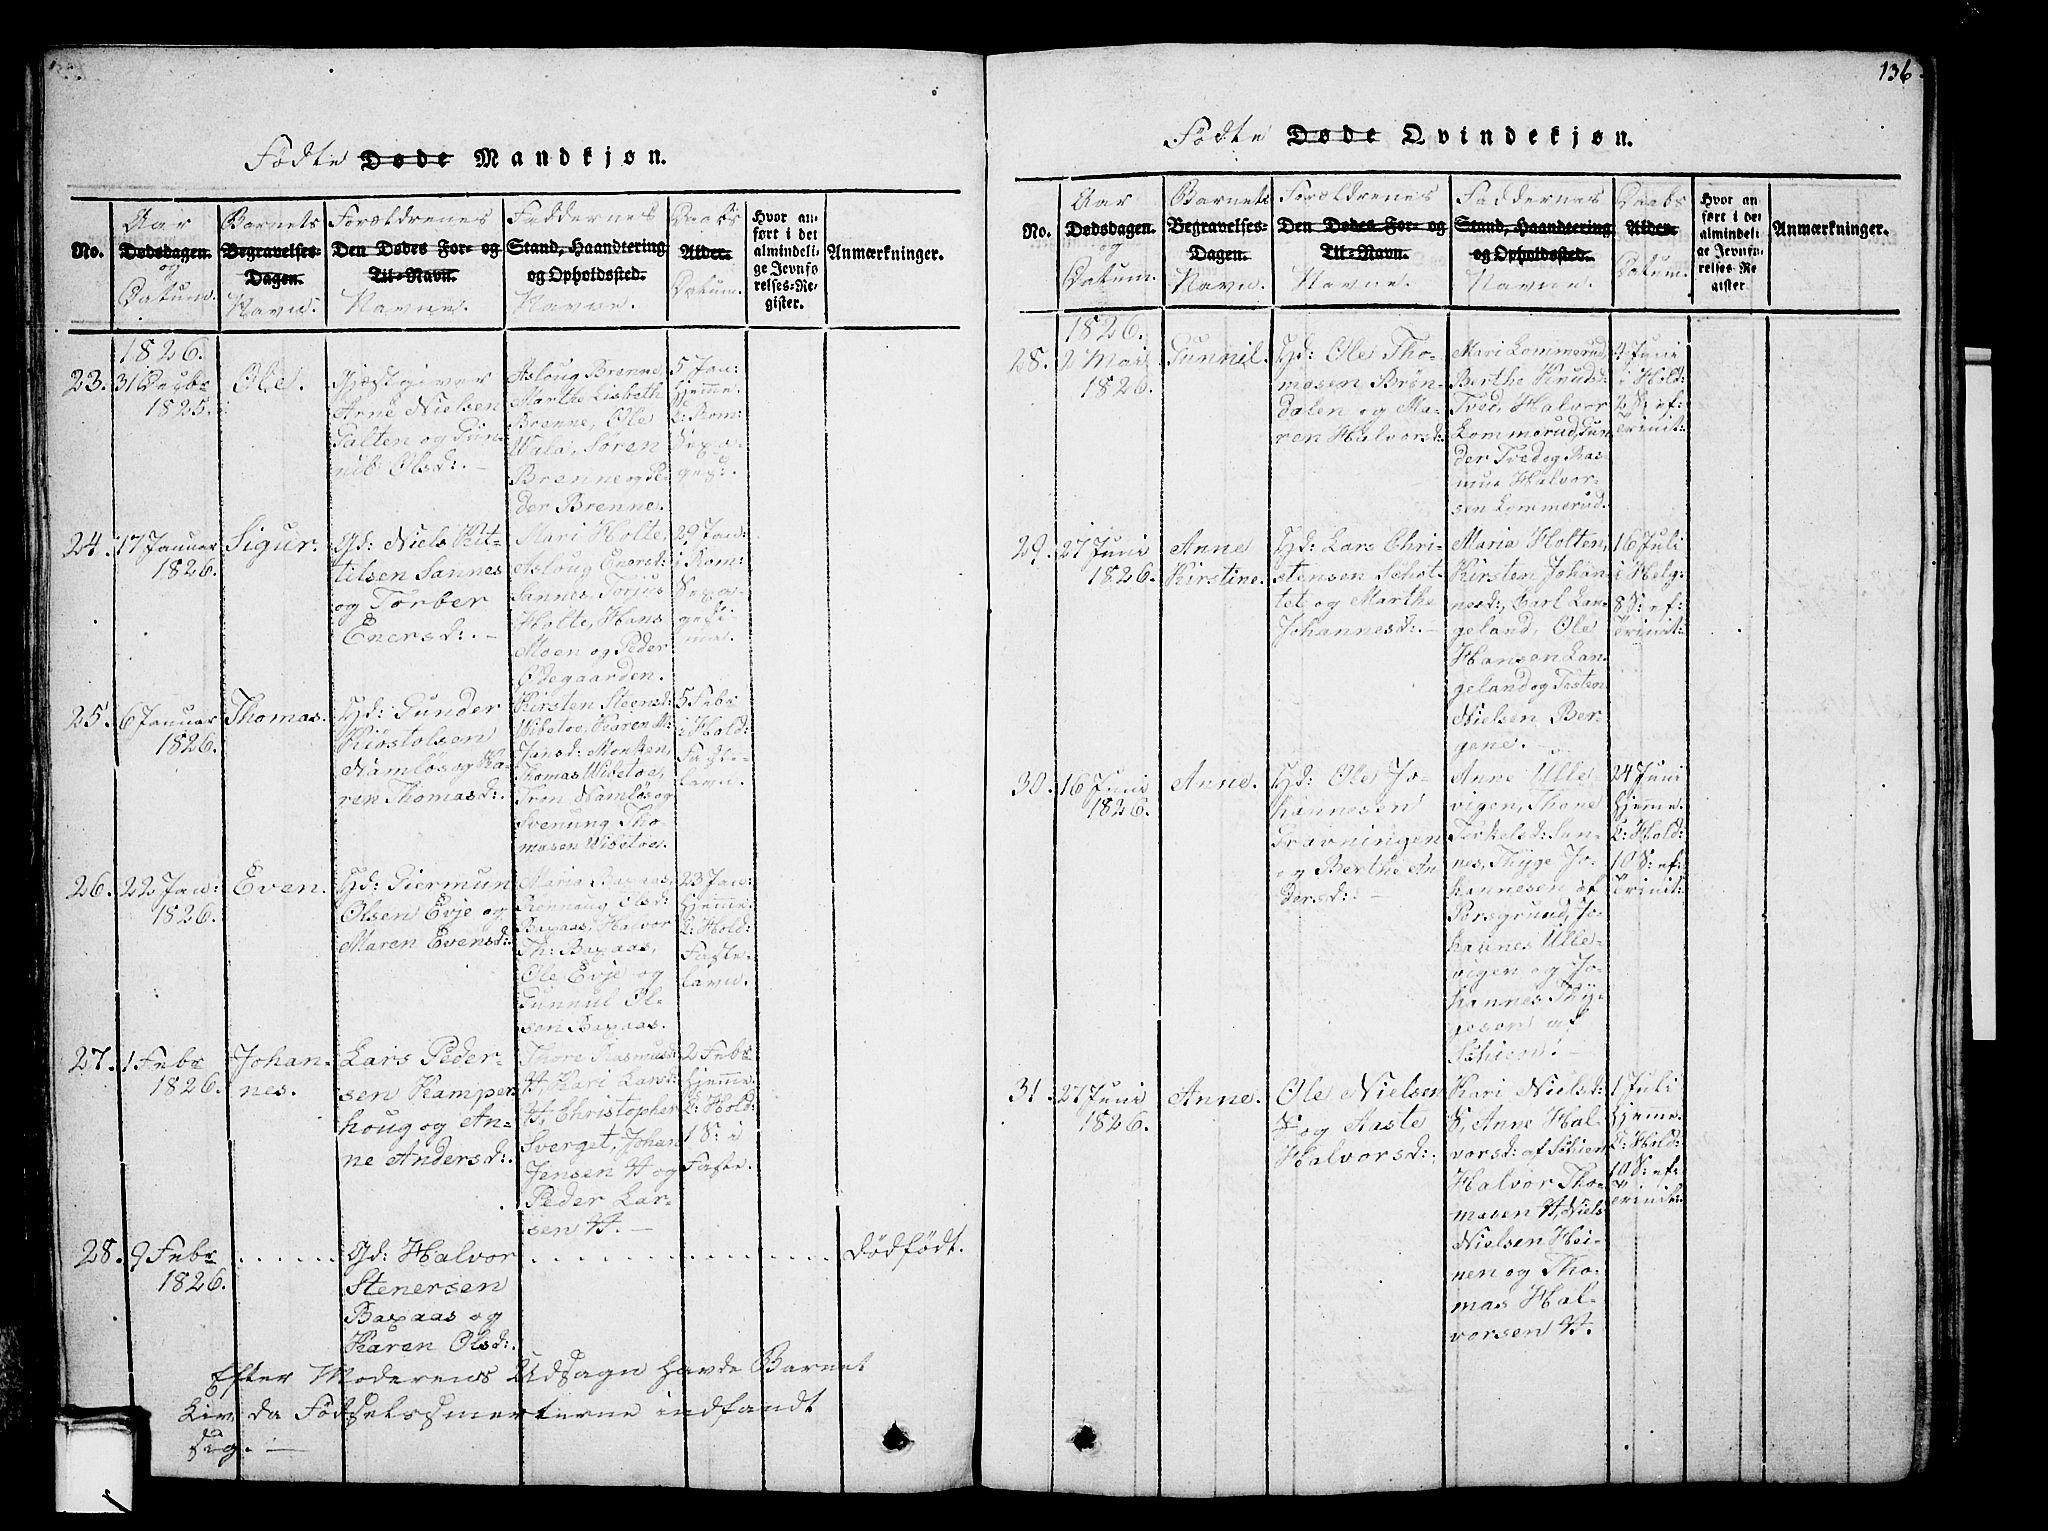 136.
Fødte Døde Mandkjøn.
No.
Aar
Dødsdagen.
og
Datum.
Barnets
Begravelses-
Dagen.
Navn.
Forældrenes
Den Dødes For- og
Til-Navn.
Navne.
Faddernes
Stand, Haandtering
og Opholdssted.
Navne.
Daabs
Alder.
Datum.
Hvor an-
ført i det
almindeli-
ge Jevnfø-
relses-Re-
gister.
Anmærkninger.
1826.
23.
31 Decbr
1825.
Ole.
Gjæstgiver
Arne Nielsen
Falten og Gun-
nil Olsd:. -
Asloug Brenne,
Marthe Lisbeth
Brenne, Ole
Wala, Søren
Brenne og Pe-
der Brenne.
5 Jan:
hjemme.
K: Rom:
Sexa-
ges:.
24.
17 Januar
1826.
Sigur.
Gd: Niels Kit-
tilsen Sannes
og Torber
Enersd:. -
Mari Holte,
Asloug Enersd:
Sannes, Torjus
Holte, Hans
Moen og Peder
Ødegaarden.
29 Jan:
i Rom:
Sexa-
gesi-
ma.
25.
6 Januar
1826.
Thomas.
Gd: Gunder
Kirstolsen
Namløs og Ka-
ren Thomasd:.
Kirsten Steensd:
Wibetoe, Karen M:
Jansd: Monken,
Thomas Wibetoe,
Tron Namløs og
Svenung Tho-
masen Wibetoe.
5 Febr
i Hold:
Faste-
lavn.
26.
22 Jan:
1826.
Even.
Gd: Giermun
Olsen Evje og
Maren Evensd:.
Maria Baxaas,
Rønnoug Olsd:
Baxaas, Halvor
Th: Baxaas,
Ole Evje og
Gunnul Ol-
sen Baxaas.
23 Jan:
hjemme.
K: Hold:
Faste-
lavn.
27.
1 Febr
1826.
Johan-
nes.
Lars Peder-
sen Kamper-
houg og An-
ne Andersd:.
Thore Rasmusd:
H, Kari Larsd:
H, Christopher
Sverget, Johan
Jensen H og
Peder Lar-
sen H. -
2 Febr
hjemme.
K: Hold:
1 S: i
Faste.
28.
9 Febr
1826.
Gd: Halvor
Stenersen
Baxaas og
Karen Olsd:.
Dødfødt.
Efter Moderens Udsagn havde Barnet
Liv da Fødselssmerterne indfandt
sig. -
Fødte Døde Qvindekjøn.
No.
Aar
Dødsdagen.
og
Datum.
Barnets
Begravelses-
Dagen.
Navn.
Forældrenes
Den Dødes For- og
Til-Navn.
Navne.
Faddernes
Stand, Haandtering
og Opholdssted.
Navne.
Daabs
Alder.
Datum.
Hvor an-
ført i det
almindeli-
ge Jevnfø-
relses-Re-
gister
Anmærkninger.
1826.
28.
2 Mai
1826.
Gunnil.
Gd: Ole Tho-
masen Brøn-
dalen og Ma-
ren Halvorsd:
Mari Lommerud,
Berthe Knudsd:
Tved, Halvor
Lommerud, Gun-
der Tved og Ras-
mus Halvor-
sen Lommerud.
4 Juni
i Hold:
2 S: ef:
Trinit:
29.
27 Juni
1826.
Anne
Kirstine.
Gd: Lars Chri-
stensen Schot-
tet og Marthe
Johannesd:. -
Maria Holten,
Kirsten Johan-
nesd:, Carl Lan-
geland, Ole
Hansen Lan-
geland og Tosten
Nielsen Ber-
gene. -
16 Juli
i Helg:
8 S: ef:
Trinit:
30.
16 Juni
1826.
Anne.
Gd: Ole Jo-
hannesen
Gravningen
og Berthe An-
dersd:. -
Anne Ulle-
vigen, Thone
Terkelsd: San-
nes, Thyge Jo-
hannesen af
Porsgrund, Jo-
hannes Ulle-
vigen og Jo-
hannes Thy-
gesen af
Schien. -
24 Juni
hjemme.
K: Hold:
10 S: ef:
Trinit:
31.
27 Juni
1826.
Anne.
Ole Nielsen
S og Aaste
Halvorsd:.
Kari Nielsd:
S, Anne Hal-
vorsd: af Schien
Halvor Tho-
masen H, Niels
Nielsen Hei-
nen og Tho-
mas Hal-
vorsen H.
1 Juli
hjemme.
K: Hold:
10 S: ef:
Trinit: